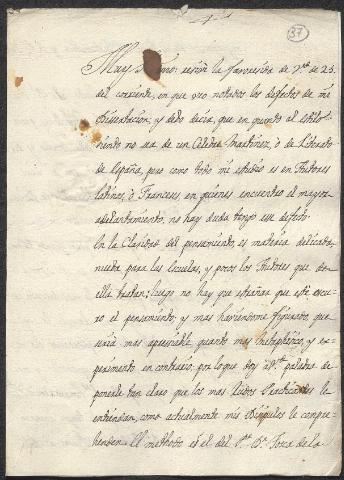 37
Muy S.r mio: recibi la favorecida de Vm.d de 25
del corriente, en que veo notados los defectos de mi
Dissertacion; y debo decir, que en quanto al estilo
siendo no sea de un Celebre Martinez, ò de Literato
de España, pues como todo mi estudio es en Autores
latinos, ò Franceses, en quienes encuentro el mayor
adelantamiento, no hay duda tengo ese defecto.
En la Claridad del pensamiento, es materia delicada
nueba para las Escuelas, y pocos los Autores que de
ella tratan; luego no hay que estrañar que esté oscu-
ro el pensamiento, y mas haviendome figurado, que
seria mas apreciable quanto mas Metaphisico, y ex-
perimento en contrario; por lo que doy a Vm.d palabra de
ponerle tan claro que los mas rudos Practicantes le
entiendan, como actualmente mis Discipulos le compre-
henden. El methodo es el del P.e D.n Tosca de la